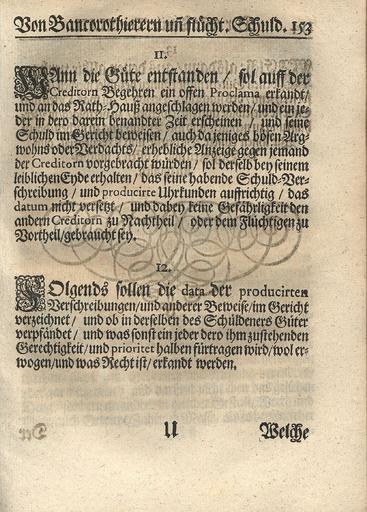 Von Bancorothierern uñ flücht. Schuld. 153
11.
WAnn die Güte entstanden / sol auff der
Creditorn Begehren ein offen Proclama erkandt/
und an das Rath-Hauß angeschlagen werden/ und ein je-
der in dero darein benandter Zeit erscheinen / und seine
Schuld im Gericht beweisen / auch da jeniges bösen Arg-
wohns oder Verdachts/ erhebliche Anzeige gegen jemand
der Creditorn vorgebracht würden / sol derselb bey seinem
leiblichen Eyde erhalten / das seine habende Schuld-Ver-
schreibung / und producirte Uhrkunden auffrichtig / das
datum nicht versetzt / und dabey keine Gefährligkeit den
andern Creditorn zu Nachtheil / oder dem Flüchtigen zu
Vortheil/gebraucht sey.
12.
FOlgends sollen die data der producirten
Verschreibungen/und anderer Beweise/im Gericht
verzeichnet / und ob in derselben des Schüldeners Güter
verpfändet / und was sonst ein jeder dero ihm zustehenden
Gerechtigkeit/und prioritet halben fürtragen wird/wol er-
wogen/und was Recht ist/ erkandt werden.
U Welche